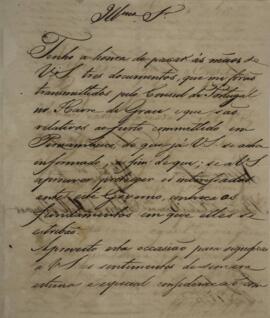 Illmo Sr.
Tenho a honra de passar às mãos de
V.S. tres documentos, que me forão
transmittidos pelo Consul de Portugal
no Havre de Grace e que são
relativos ao furto commettido em
Pernambuco, de que já V.S. se acha
informado, a fim de que, se a V.S.
aprouver proteger os interessados
ante o Governo, conheça os
fundamentos em que elles se
Aproveito esta occasião para significar
a V.S. os sentimentos de
estima e especial consideração com